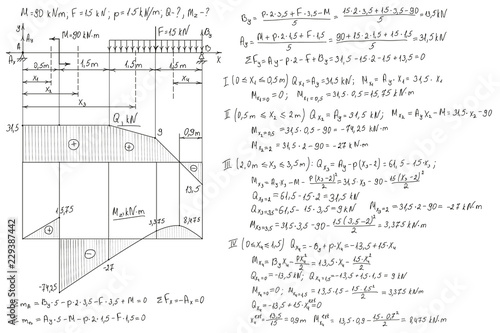 M=90 kNm; F=15 kN; p=15 kN/m; Q-?, Mz-?
y
Ay
M=90 kN·m
F=15 kN
By
A
B
x
Ax
0,5m
1,5m
1,5m
1,5m
x1
x2
x3
x4
31,5
Q, kN
9
0,9m
+
-
13,5
15,75
M, kN·m
3,375
8,475
+
-
-27
-74,25
Σma = By·5 - p·2·3,5 - F·3,5 + M = 0
ΣFx = -Ax = 0
Σmb = Ay·5 - M - p·2·1,5 - F·1,5 = 0
By = p·2·3,5+F·3,5-M / 5 = 15·2·3,5+15·3,5-90 / 5 = 13,5 kN
Ay = M+p·2·1,5+F·1,5 / 5 = 90+15·2·1,5+15·1,5 / 5 = 31,5 kN
ΣFy = Ay - p·2 - F + By = 31,5 - 15·2 - 15 + 13,5 = 0
I (0 ≤ x1 ≤ 0,5m) Qx1 = Ay = 31,5 kN; Mx1 = Ay·x1 = 31,5·x1
Mx1=0 = 0; Mx1=0,5 = 31,5·0,5 = 15,75 kN·m
II (0,5m ≤ x2 ≤ 2m) Qx2 = Ay = 31,5 kN; Mx2 = Ay x2 - M = 31,5·x2 - 90
Mx2=0,5 = 31,5·0,5 - 90 = -74,25 kN·m
Mx2=2 = 31,5·2 - 90 = -27 kN·m
III (2,0m ≤ x3 ≤ 3,5m): Qx3 = Ay - p(x3-2) = 61,5 - 15·x3;
Mx3 = Ay x3 - M - p(x3-2)² / 2 = 31,5·x3 - 90 - 15(x3-2)² / 2
Qx3=2 = 61,5 - 15·2 = 31,5 kN
Qx3=3,5 = 61,5 - 15·3,5 = 9 kN; Mx3=2 = 31,5·2 - 90 = -27 kN·m
Mx3=3,5 = 31,5·3,5 - 90 - 15(3,5-2)² / 2 = 3,375 kN·m
IV (0 ≤ x4 ≤ 1,5) Qx4 = -By + p·x4 = -13,5 + 15x4
Mx4 = By x4 - px4² / 2 = 13,5·x4 - 15·x4² / 2
Qx4=0 = -13,5 kN; Qx4=1,5 = -13,5 + 15·1,5 = 9 kN
Mx4=0 = 0; Mx4=1,5 = 13,5·1,5 - 15·1,5² / 2 = 3,375 kN·m
Qx4 = -13,5 + 15x4 = 0
x4 ext = 13,5 / 15 = 0,9m Mx4 ext = 13,5·0,9 - 15·0,9² / 2 = 8,475 kN·m
Adobe Stock | #229387442